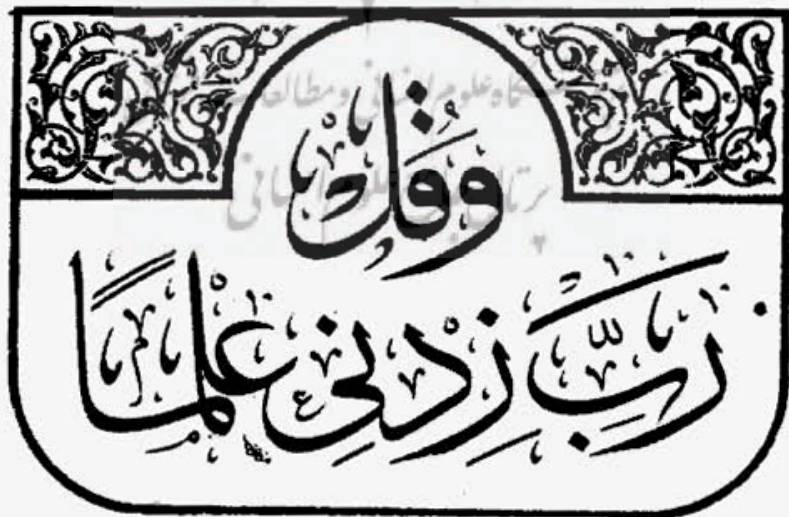 پژوهشگاه علوم انسانی و مطالعات
وَقُلْ
پرتال جامع علوم انسانی
رَبِّ زِدْنِی عِلْمًا